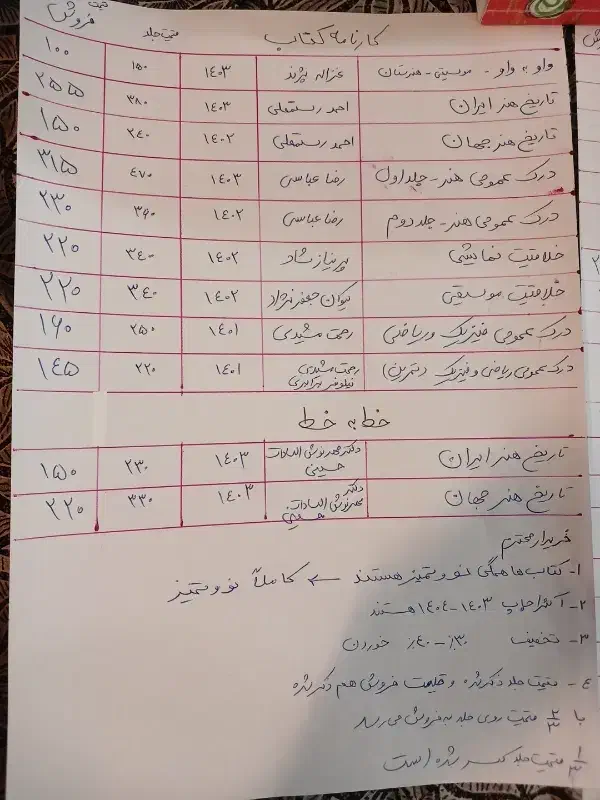 کارنامه کتاب قیمت جلد قیمت فروش
واو به واو - موسیقی - هنرستان ۱۴۰۳ ۱۵۰ ۱۰۰
تاریخ هنر ایران احمد رستمعلی ۱۴۰۳ ۳۸۰ ۲۵۵
تاریخ هنر جهان احمد رستمعلی ۱۴۰۲ ۲۴۰ ۱۵۰
درک عمومی هنر - جلد اول رضا عباسی ۱۴۰۳ ۴۷۰ ۳۱۵
درک عمومی هنر - جلد دوم رضا عباسی ۱۴۰۲ ۳۶۰ ۲۳۰
خلاقیت نمایشی پریناز شاد ۱۴۰۲ ۳۴۰ ۲۲۰
خلاقیت موسیقی کیوان جعفرنژاد ۱۴۰۲ ۳۴۰ ۲۲۰
درک عمومی فیزیک و ریاضی رحمت مشیدی ۱۴۰۱ ۲۵۰ ۱۶۰
درک عمومی ریاضی و فیزیک (تمرین) رحمت مشیدی نیلوفر ۱۴۰۱ ۲۲۰ ۱۴۵
خط به خط
تاریخ هنر ایران دکتر مهرنوش السادات حسینی ۱۴۰۳ ۲۳۰ ۱۵۰
تاریخ هنر جهان دکتر مهرنوش السادات حسینی ۱۴۰۳ ۳۳۰ ۲۲۰
خریدار محترم
۱- کتاب ها همگی نو و تمیز هستند ← کاملاً نو و تمیز
۲- اکثرا چاپ ۱۴۰۳ - ۱۴۰۴ هستند
۳- تخفیف ۳۰٪ - ۴۰٪ خوردن
۴- قیمت جلد ذکر شده و قیمت فروش هم ذکر شده
با ۲/۳ قیمت روی جلد به فروش می رسد
۱/۳ قیمت جلد کسر شده است